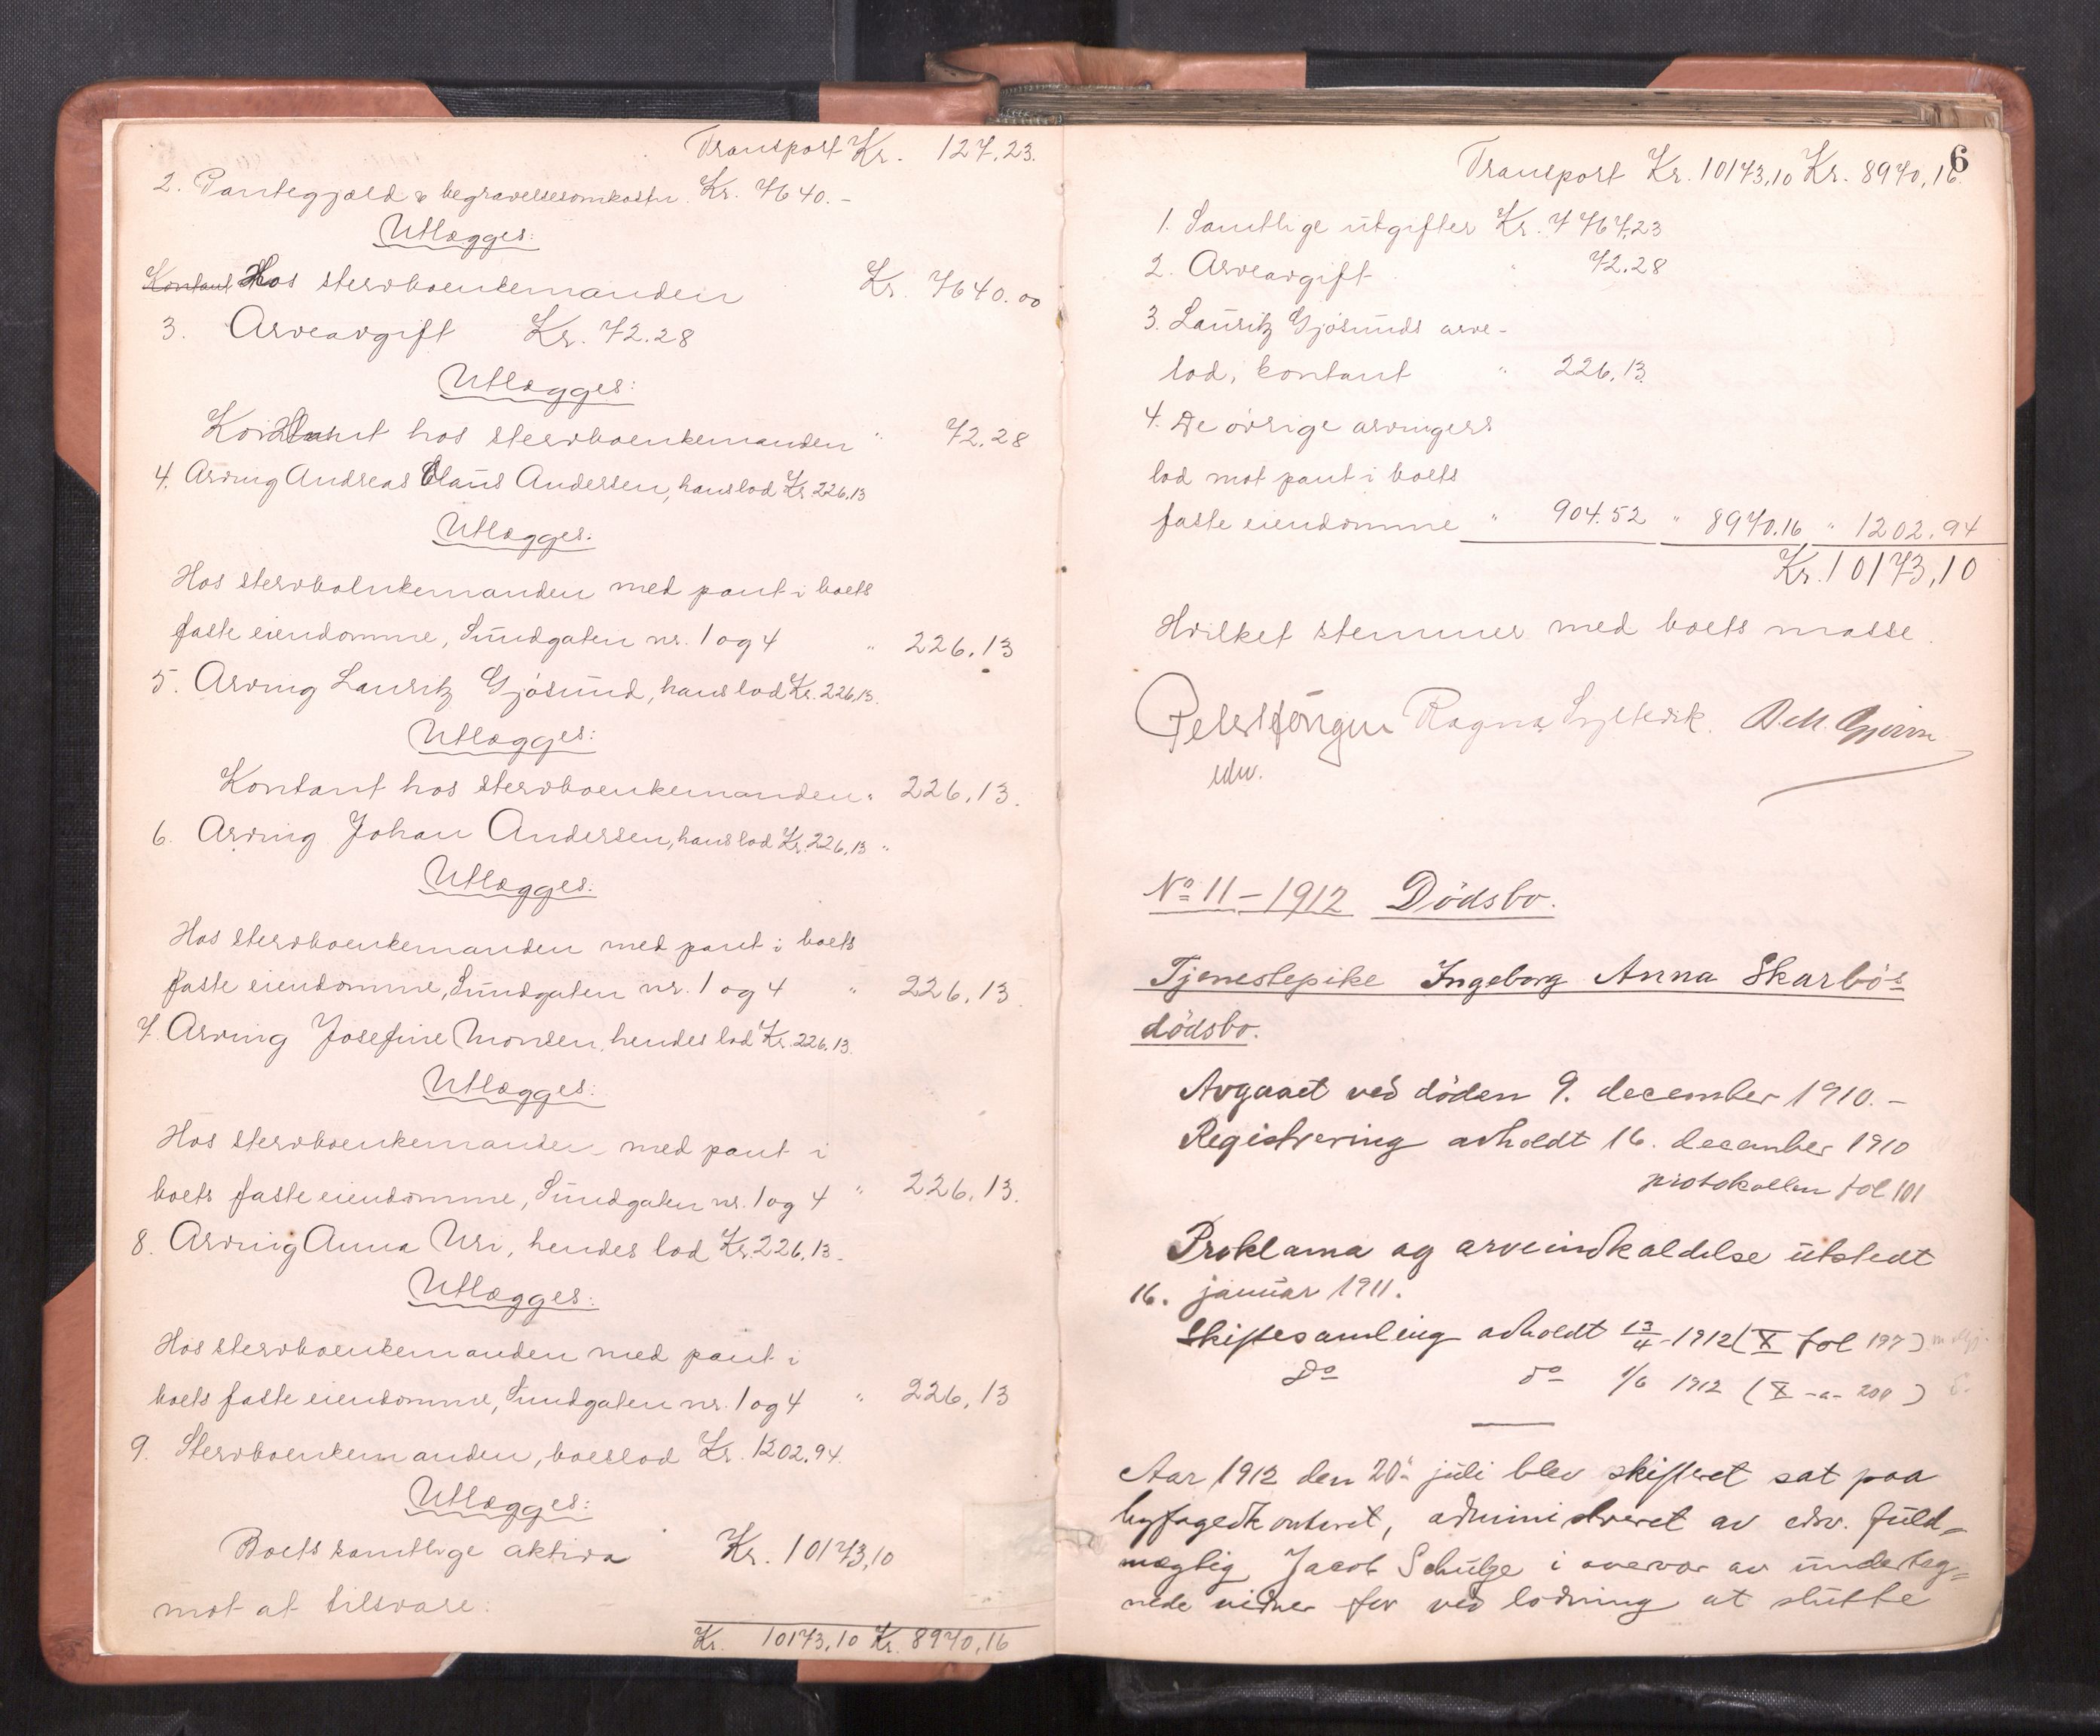 Transport Kr. 127,23.
2. Pantegjæld & begravelsesomkostn. Kr. 7640.-
Utlægges:
Kontant Hos stervboenkemanden Kr. 7640.00
3. Arveavgift Kr. 72.28
Utlægges:
Kontant hos stervboenkemanden " 72.28
4. Arving Andreas Claus Andersen, hans lod Kr. 226,13
Utlægges:
Hos stervboenkemanden med pant i boets
faste eiendomme, Sundgaten nr. 1 og 4 " 226,13
5. Arving Lauritz Gjósund, hans lod Kr. 226,13.
Utlægges:
Kontant hos stervboenkemanden " 226,13.
6. Arving Johan Andersen, hans lod Kr. 226,13 "
Utlægges:
Hos stervboenkemanden med pant i boets
faste eiendomme, Sundgaten nr. 1 og 4 " 226,13
7. Arving Josefine Monsen, hendes lod Kr. 226.13.
Utlægges:
Hos stervboenkemanden med pant i
boets faste eiendomme, Sundgaten nr. 1 og 4 " 226,13.
8. Arving Anna Uri, hendes lod Kr. 226,13.
Utlægges:
Hos stervboenkemanden med pant i
boets faste eiendomme, Sundgaten nr. 1 og 4 " 226,13
9. Stervboenkemanden, boeslod Kr. 1202,94.
Utlægges:
Boets samtlige aktiva Kr. 10173,10
mot at tilsvare:
Kr. 10173,10 Kr. 8970,16
6
Transport Kr. 10173,10 Kr. 8970,16.
1. Samtlige utgifter Kr. 7767,23
2. Arveavgift " 72.28
3. Lauritz Gjósunds arve-
lod, kontant " 226,13.
4. De óvrige arvingers
lod mot pant i boets
faste eiendomme " 904.52 " 8970.16 " 1202.94
Kr. 10173,10
Hvilket stemmer med boets masse.
Ragna Syltevik.
edv.
No 11 - 1912 Dödsbo.
Tjenestepike Ingeborg Anna Skarbö's
dödsbo.
Avgaaet ved döden 9. december 1910. -
Registrering avholdt 16. december 1910
protokollen fol 101
Proklama og arveindkaldelse utstedt
16. januar 1911.
Skiftesamling avholdt 13/4 - 1912 (X fol 197)
do do 1/6 1912 (X -a- 200)
Aar 1912 den 20de juli blev skifteret sat paa
byfogedkontoret, administreret av edsv. fuld-
mægtig Jacob Schulze i overvær av underteg-
nede vidner for ved lodning at slutte